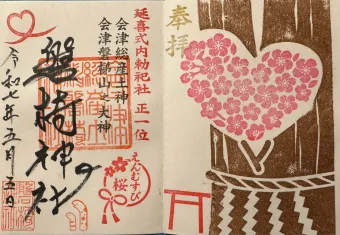 奉拝
延喜式内勅祀社 正一位
会津総産土神
会津磐梯山之大神
磐椅神社
えんむすび
桜
令和七年五月五日